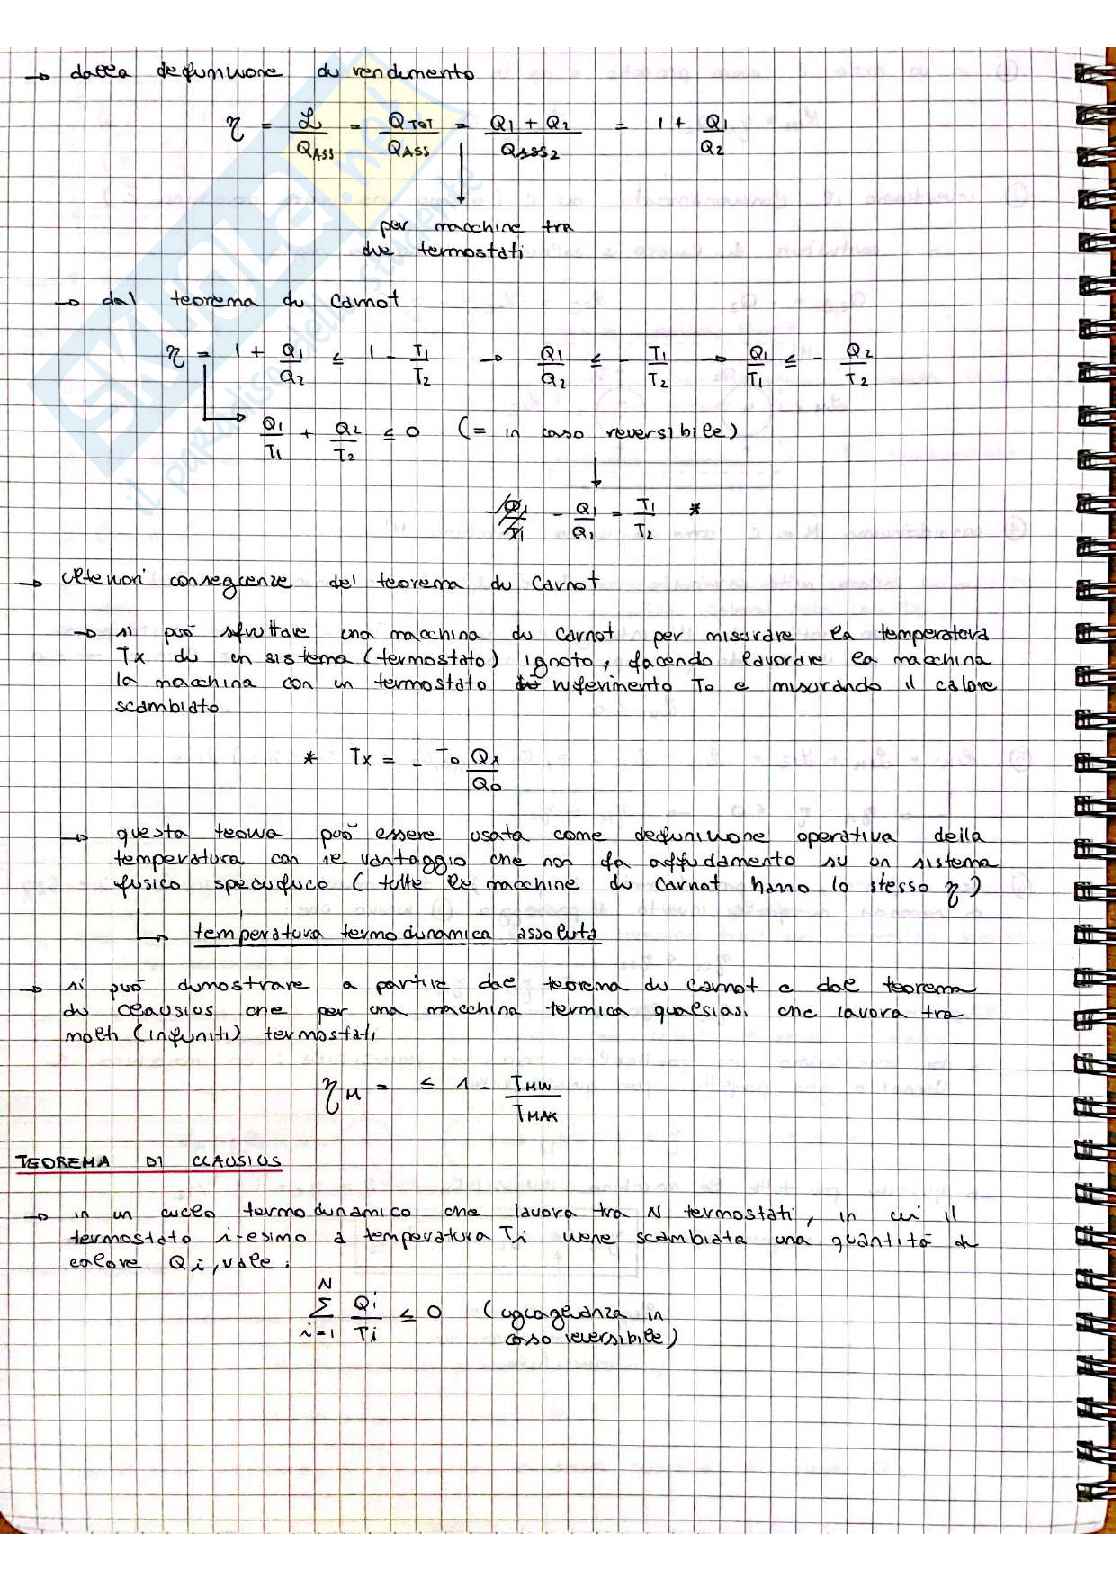 → dalla definizione di rendimento
η = L/Q_ASS = Q_TOT/Q_ASS = (Q1 + Q2)/Q_ASS2 = 1 + Q1/Q2
per macchine tra
due termostati
→ dal teorema di Carnot
η = 1 + Q1/Q2 ≤ 1 - T1/T2 → Q1/Q2 ≤ - T1/T2 → Q1/T1 ≤ - Q2/T2
Q1/T1 + Q2/T2 ≤ 0 (= in caso reversibile)
- Q1/Q2 = T1/T2 *
→ ulteriori conseguenze del teorema di Carnot
→ si può sfruttare una macchina di Carnot per misurare la temperatura
Tx di un sistema (termostato) ignoto, facendo lavorare la macchina
la macchina con un termostato riferimento To e misurando il calore
scambiato
* Tx = - To Qx/Qo
→ questa teoria può essere usata come definizione operativa della
temperatura con il vantaggio che non fa affidamento su un sistema
fisico specifico (tutte le macchine di Carnot hanno lo stesso η)
↳ temperatura termodinamica assoluta
→ si può dimostrare a partire dal teorema di Carnot e dal teorema
di Clausius che per una macchina termica qualsiasi che lavora tra
molti (infiniti) termostati
η_M = ≤ 1 - T_MIN/T_MAX
TEOREMA DI CLAUSIUS
→ in un ciclo termodinamico che lavora tra N termostati, in cui il
termostato i-esimo a temperatura Ti viene scambiata una quantità di
calore Qi, vale:
N
Σ Qi/Ti ≤ 0 (uguaglianza in
i=1 caso reversibile)
SKUOLA.net
il paradiso dello studente